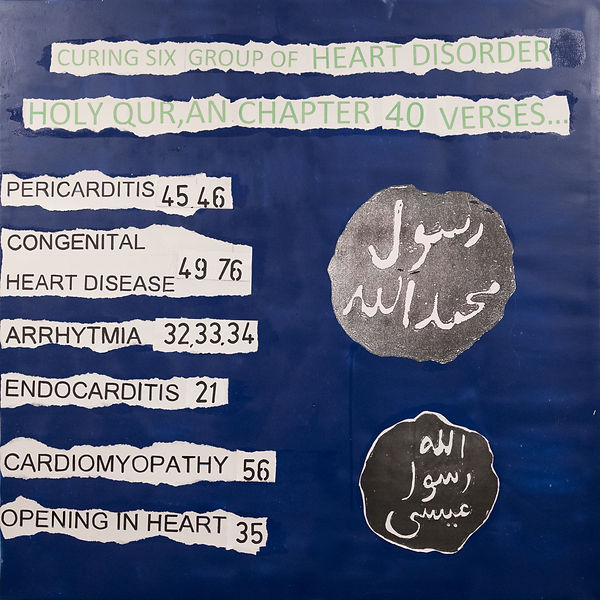 CURING SIX GROUP OF HEART DISORDER
HOLY QUR,AN CHAPTER 40 VERSES...
PERICARDITIS 45,46
CONGENITAL
HEART DISEASE 49 76
ARRHYTMIA 32,33,34
ENDOCARDITIS 21
CARDIOMYOPATHY 56
OPENING IN HEART 35
رسول
محمد الله
الله
رسول
عیسی